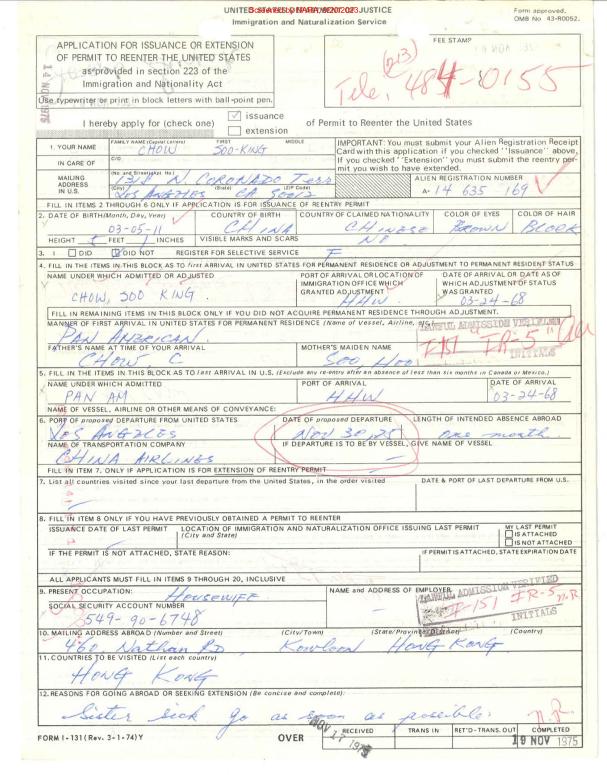 UNITED STATES DEPARTMENT OF JUSTICE
Immigration and Naturalization Service
Form approved.
OMB No. 43-R0052.
APPLICATION FOR ISSUANCE OR EXTENSION
OF PERMIT TO REENTER THE UNITED STATES
as provided in section 223 of the
Immigration and Nationality Act
Use typewriter or print in block letters with ball-point pen.
FEE STAMP
(213)
Tele. 484-0155
I hereby apply for (check one) ☑ issuance of Permit to Reenter the United States
☐ extension
1. YOUR NAME
FAMILY NAME (Capital Letters) FIRST MIDDLE
CHOW SOO-KING
IN CARE OF
C/O
MAILING ADDRESS IN U.S.
(No. and Street)(Apt. No.)
1318 N. CORONADO Terr
(City) (State) (ZIP Code)
LOS ANGELES CA
IMPORTANT: You must submit your Alien Registration Receipt
Card with this application if you checked "Issuance" above,
If you checked "Extension" you must submit the reentry per-
mit you wish to have extended.
ALIEN REGISTRATION NUMBER
A- 14 635 169
FILL IN ITEMS 2 THROUGH 6 ONLY IF APPLICATION IS FOR ISSUANCE OF REENTRY PERMIT
2. DATE OF BIRTH (Month, Day, Year) COUNTRY OF BIRTH COUNTRY OF CLAIMED NATIONALITY COLOR OF EYES COLOR OF HAIR
03-05-11 CHINA CHINESE BROWN BLOCK
HEIGHT 5 FEET 1 INCHES VISIBLE MARKS AND SCARS NO
3. I ☐ DID ☑ DID NOT REGISTER FOR SELECTIVE SERVICE F
4. FILL IN THE ITEMS IN THIS BLOCK AS TO first ARRIVAL IN UNITED STATES FOR PERMANENT RESIDENCE OR ADJUSTMENT TO PERMANENT RESIDENT STATUS
NAME UNDER WHICH ADMITTED OR ADJUSTED
CHOW, SOO KING.
PORT OF ARRIVAL OR LOCATION OF
IMMIGRATION OFFICE WHICH
GRANTED ADJUSTMENT
HHW
DATE OF ARRIVAL OR DATE AS OF
WHICH ADJUSTMENT OF STATUS
WAS GRANTED
03-24-68
FILL IN REMAINING ITEMS IN THIS BLOCK ONLY IF YOU DID NOT ACQUIRE PERMANENT RESIDENCE THROUGH ADJUSTMENT.
MANNER OF FIRST ARRIVAL IN UNITED STATES FOR PERMANENT RESIDENCE (Name of Vessel, Airline, etc.)
PAN AMERICAN.
LAWFUL ADMISSION VERIFIED
I-151 IR-5
INITIALS
FATHER'S NAME AT TIME OF YOUR ARRIVAL
CHOW C.
MOTHER'S MAIDEN NAME
SOO, HOO
5. FILL IN THE ITEMS IN THIS BLOCK AS TO last ARRIVAL IN U.S. (Exclude any re-entry after an absence of less than six months in Canada or Mexico.)
NAME UNDER WHICH ADMITTED PORT OF ARRIVAL DATE OF ARRIVAL
PAN AM HHW 03-24-68
NAME OF VESSEL, AIRLINE OR OTHER MEANS OF CONVEYANCE:
6. PORT OF proposed DEPARTURE FROM UNITED STATES DATE OF proposed DEPARTURE LENGTH OF INTENDED ABSENCE ABROAD
LOS ANGELES NOV 30, 75 one month.
NAME OF TRANSPORTATION COMPANY IF DEPARTURE IS TO BE BY VESSEL, GIVE NAME OF VESSEL
CHINA AIRLINES —
FILL IN ITEM 7. ONLY IF APPLICATION IS FOR EXTENSION OF REENTRY PERMIT
7. List all countries visited since your last departure from the United States, in the order visited DATE & PORT OF LAST DEPARTURE FROM U.S.
8. FILL IN ITEM 8 ONLY IF YOU HAVE PREVIOUSLY OBTAINED A PERMIT TO REENTER
ISSUANCE DATE OF LAST PERMIT LOCATION OF IMMIGRATION AND NATURALIZATION OFFICE ISSUING LAST PERMIT
(City and State)
MY LAST PERMIT
☐ IS ATTACHED
☐ IS NOT ATTACHED
IF THE PERMIT IS NOT ATTACHED, STATE REASON: IF PERMIT IS ATTACHED, STATE EXPIRATION DATE
ALL APPLICANTS MUST FILL IN ITEMS 9 THROUGH 20, INCLUSIVE
9. PRESENT OCCUPATION: HOUSEWIFE
NAME and ADDRESS OF EMPLOYER
LAWFUL ADMISSION VERIFIED
I-151 IR-5
INITIALS
SOCIAL SECURITY ACCOUNT NUMBER
549-90-6748
10. MAILING ADDRESS ABROAD (Number and Street) (City/Town) (State/Province/District) (Country)
460 Nathan RD. Kowloon HONG KONG
11. COUNTRIES TO BE VISITED (List each country)
HONG KONG
12. REASONS FOR GOING ABROAD OR SEEKING EXTENSION (Be concise and complete):
Sister sick go as soon as possible.
FORM I-131 (Rev. 3-1-74) Y
OVER
NOV 17 1975
RECEIVED TRANS IN RET'D-TRANS. OUT COMPLETED
19 NOV 1975